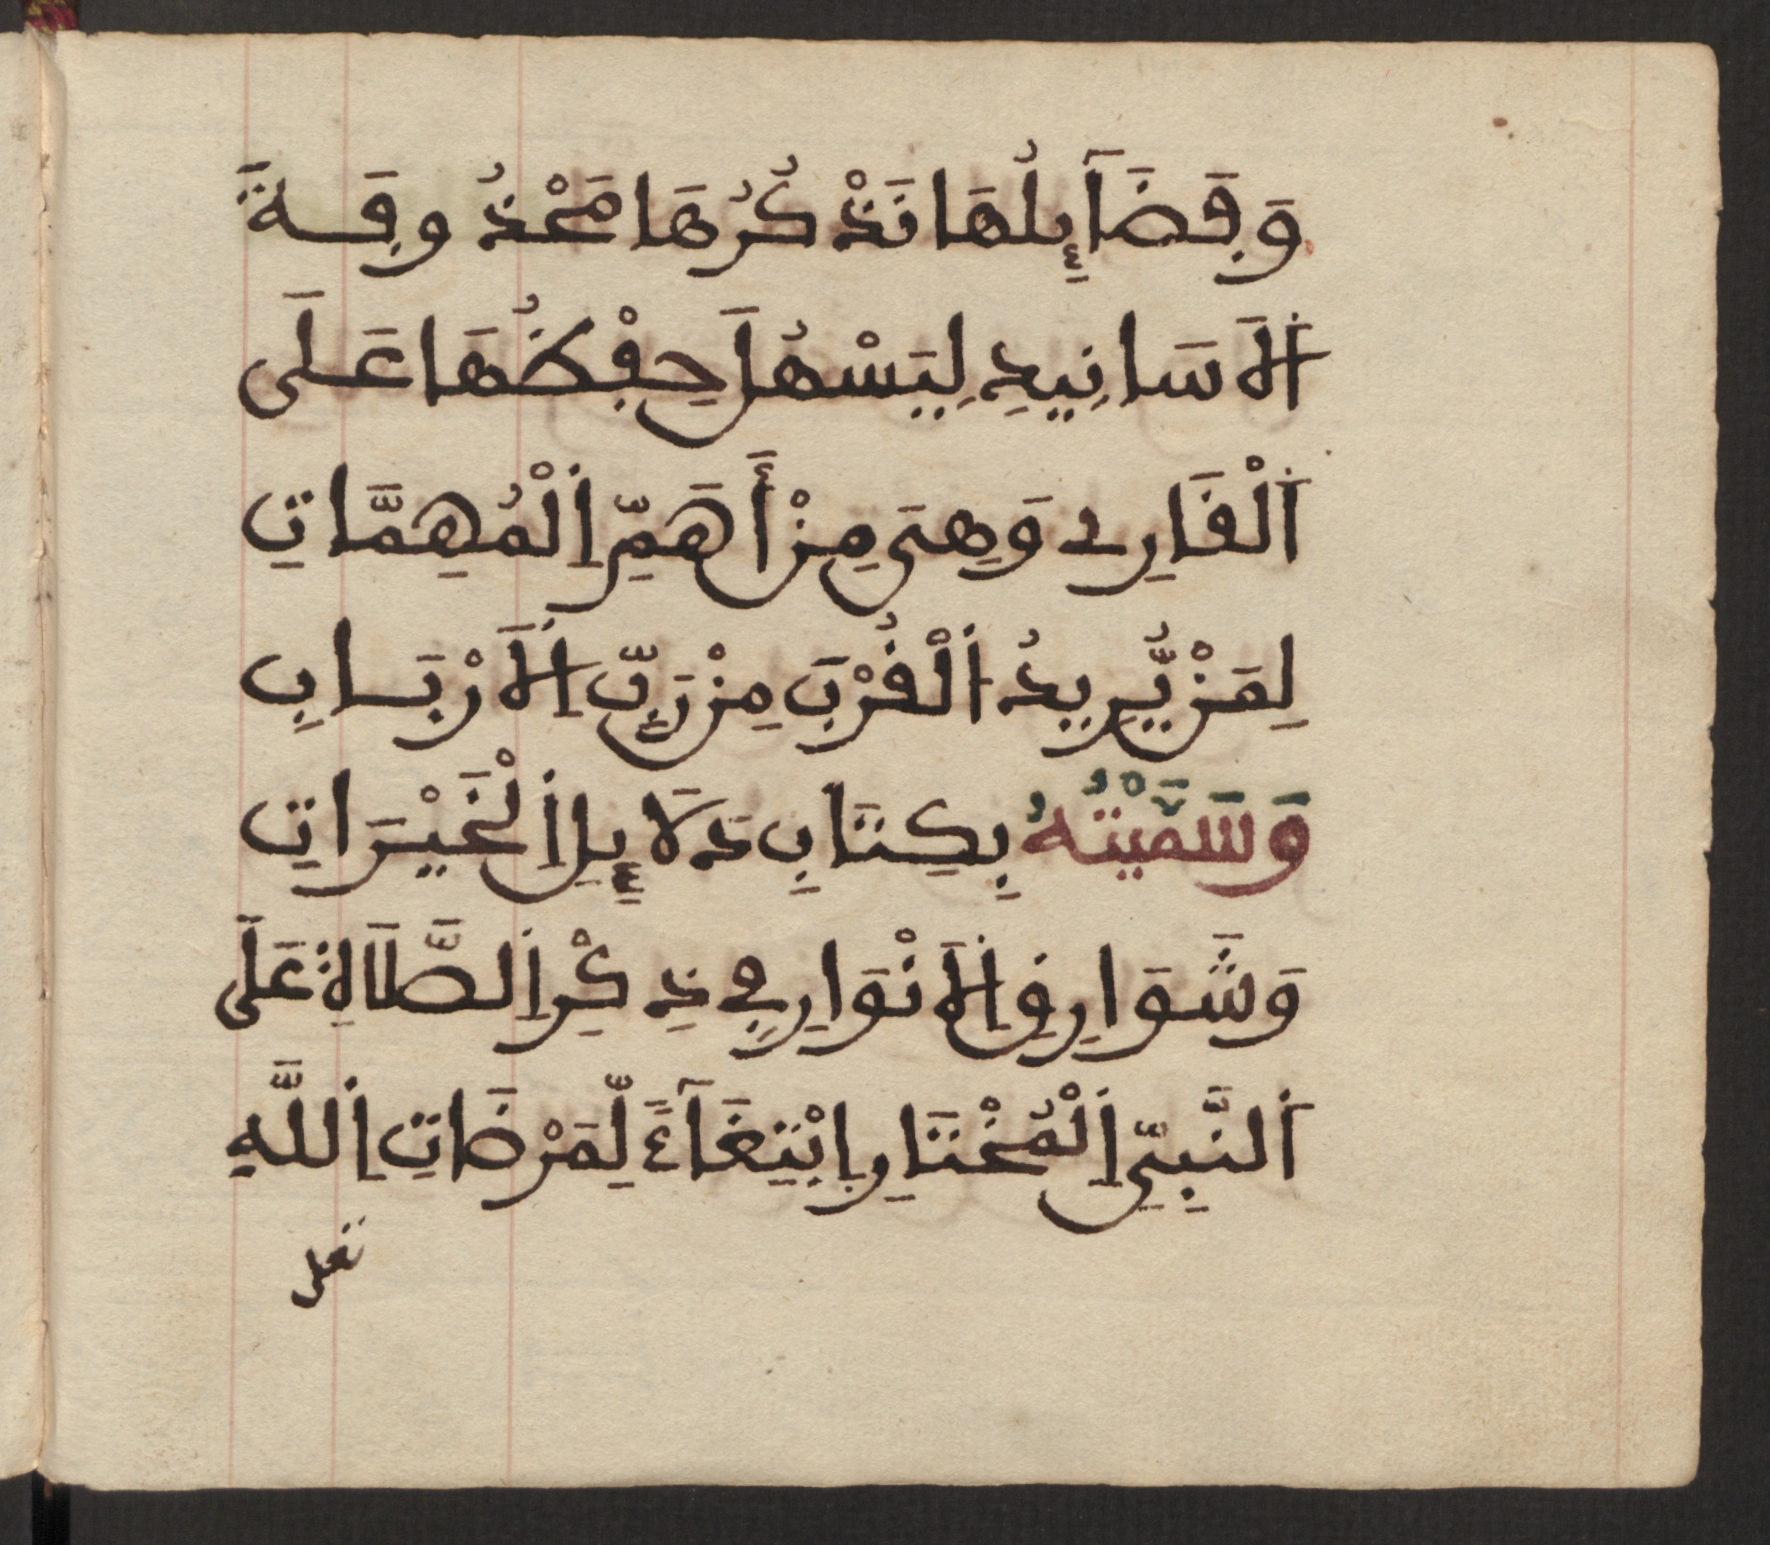 وَفَضَآئِلُهَا نَذْكُرُهَا مَحْذُوفَةَ
اَ۬لَاسَانِيدِ لِيَسْهُلَ حِفْظُهَا عَلَى
اَ۬لْقَارِے وَهِىَ مِنْ أَهَمِّ اِ۬لْمُهِمَّاتِ
لِمَنْ يُّرِيدُ اُ۬لْقُرْبَ مِنْ رَبِّ اِ۬لَارْبَابِ
وَسَمَّيْتُهُ بِكِتَابِ دَلَآئِلِ اِ۬لْخَيْرَاتِ
وَشَوَارِقِ اِ۬لَانْوَارِ فِي ذِكْرِ اِ۬لصَّلَاةِ عَلَى
اَ۬لنَّبِيِّ اِ۬لْمُخْتَارِ اِبْتِغَآءَ لِّمَرْضَاتِ اِ۬للَّهِ
تعلى